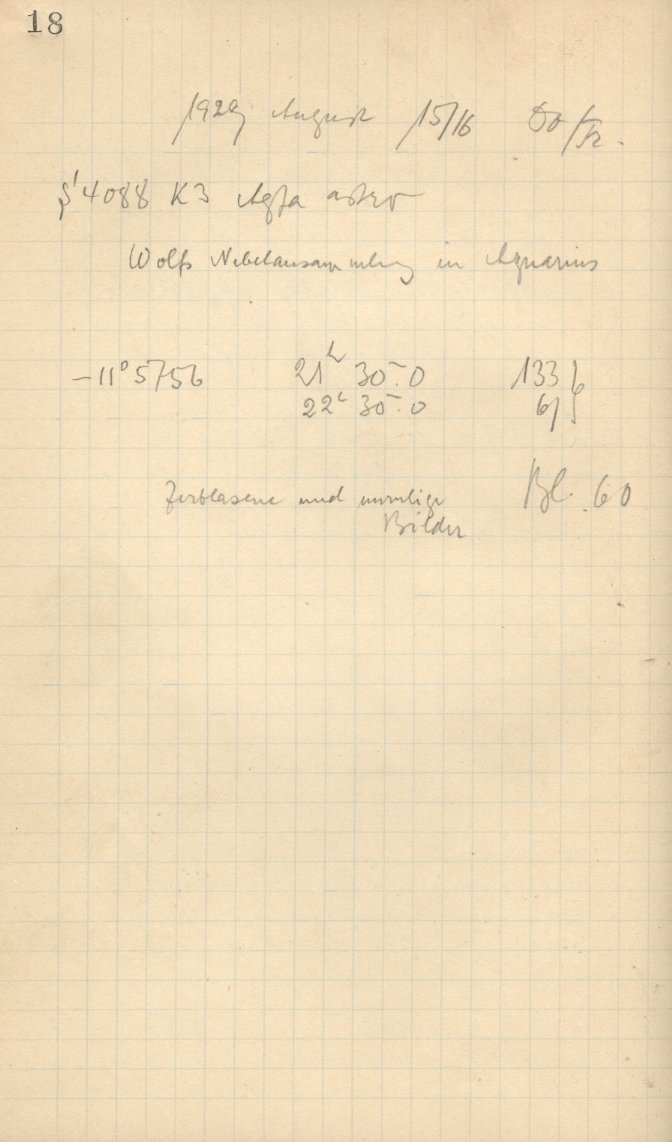 18
1929 August 15/16 Do/Fr.
4088 K3 Agfa astro
Wolfs Nebelansammlung in Aquarius
-11° 5756 21h 30.0 133
22h 30.0 61
Zerblasene und unruhige Bl. 60
Bilder